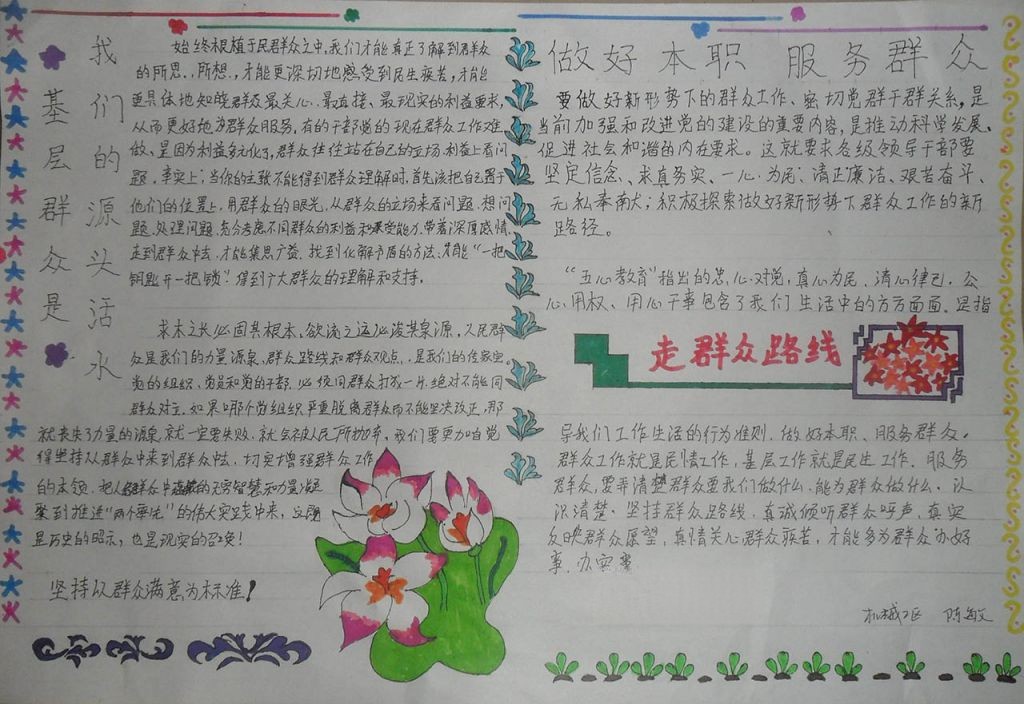 我们的源头活水
基层群众是
始终根植于民群众之中,我们才能真正了解到群众
的所思、所想,才能更深切地感受到民生疾苦,才能
更具体地知晓群众最关心、最直接、最现实的利益要求,
从而更好地为群众服务,有的干部觉的现在群众工作难
做、是因为利益多元化了,群众往往站在自己的立场、利益上看问
题。事实上,当你的主张不能得到群众理解时,首先该把自己置于
他们的位置上,用群众的眼光,从群众的立场来看问题、想问
题、处理问题,充分考虑不同群众的利益和承受能力,带着深厚感情
走到群众中去,才能集思广益、找到化解矛盾的方法,才能“一把
钥匙开一把锁”,得到广大群众的理解和支持。
求木之长必固其根本、欲流之远必浚其泉源,人民群
众是我们的力量源泉,群众路线和群众观点,是我们的传家宝。
党的组织、党员和党的干部,必须同群众打成一片,绝对不能同
群众对立。如果哪个党组织严重脱离群众而不能坚决改正,那
就丧失了力量的源泉,就一定要失败,就会被人民所抛弃,我们要更加自觉
得坚持从群众中来到群众中去,切实增强群众工作
的本领,把人民群众中的无穷智慧和力量凝
聚到推进“两个率先”的伟大实践中来,这既
是历史的昭示,也是现实的召唤!
坚持以群众满意为标准!
做好本职 服务群众
要做好新形势下的群众工作、密切党群干群关系,是
当前加强和改进党的建设的重要内容,是推动科学发展、
促进社会和谐的内在要求。这就要求各级领导干部要
坚定信念、求真务实、一心为民;清正廉洁、艰苦奋斗、
无私奉献;积极探索做好新形势下群众工作的新
路径。
“五心教育”指出的忠心对党,真心为民,清心律己,公
心用权、用心干事包含了我们生活中的方方面面。是指
走群众路线
导我们工作生活的行为准则,做好本职、服务群众。
群众工作就是民情工作,基层工作就是民生工作。服务
群众,要弄清楚群众要我们做什么、能为群众做什么。认
识清楚、坚持群众路线,真诚倾听群众呼声、真实
反映群众愿望、真情关心群众疾苦,才能多为群众办好
事、办实事
机械工区 陈敏